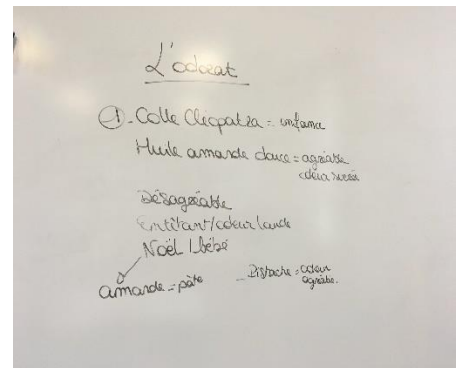 L'odorat
①- Colle Cléopatra =
Huile amande douce = agréable
odeur sucrée
Désagréable
Entêtant/odeur lourde
Noël / bébé
amande = pâte
- Pistache = odeur
agréable.